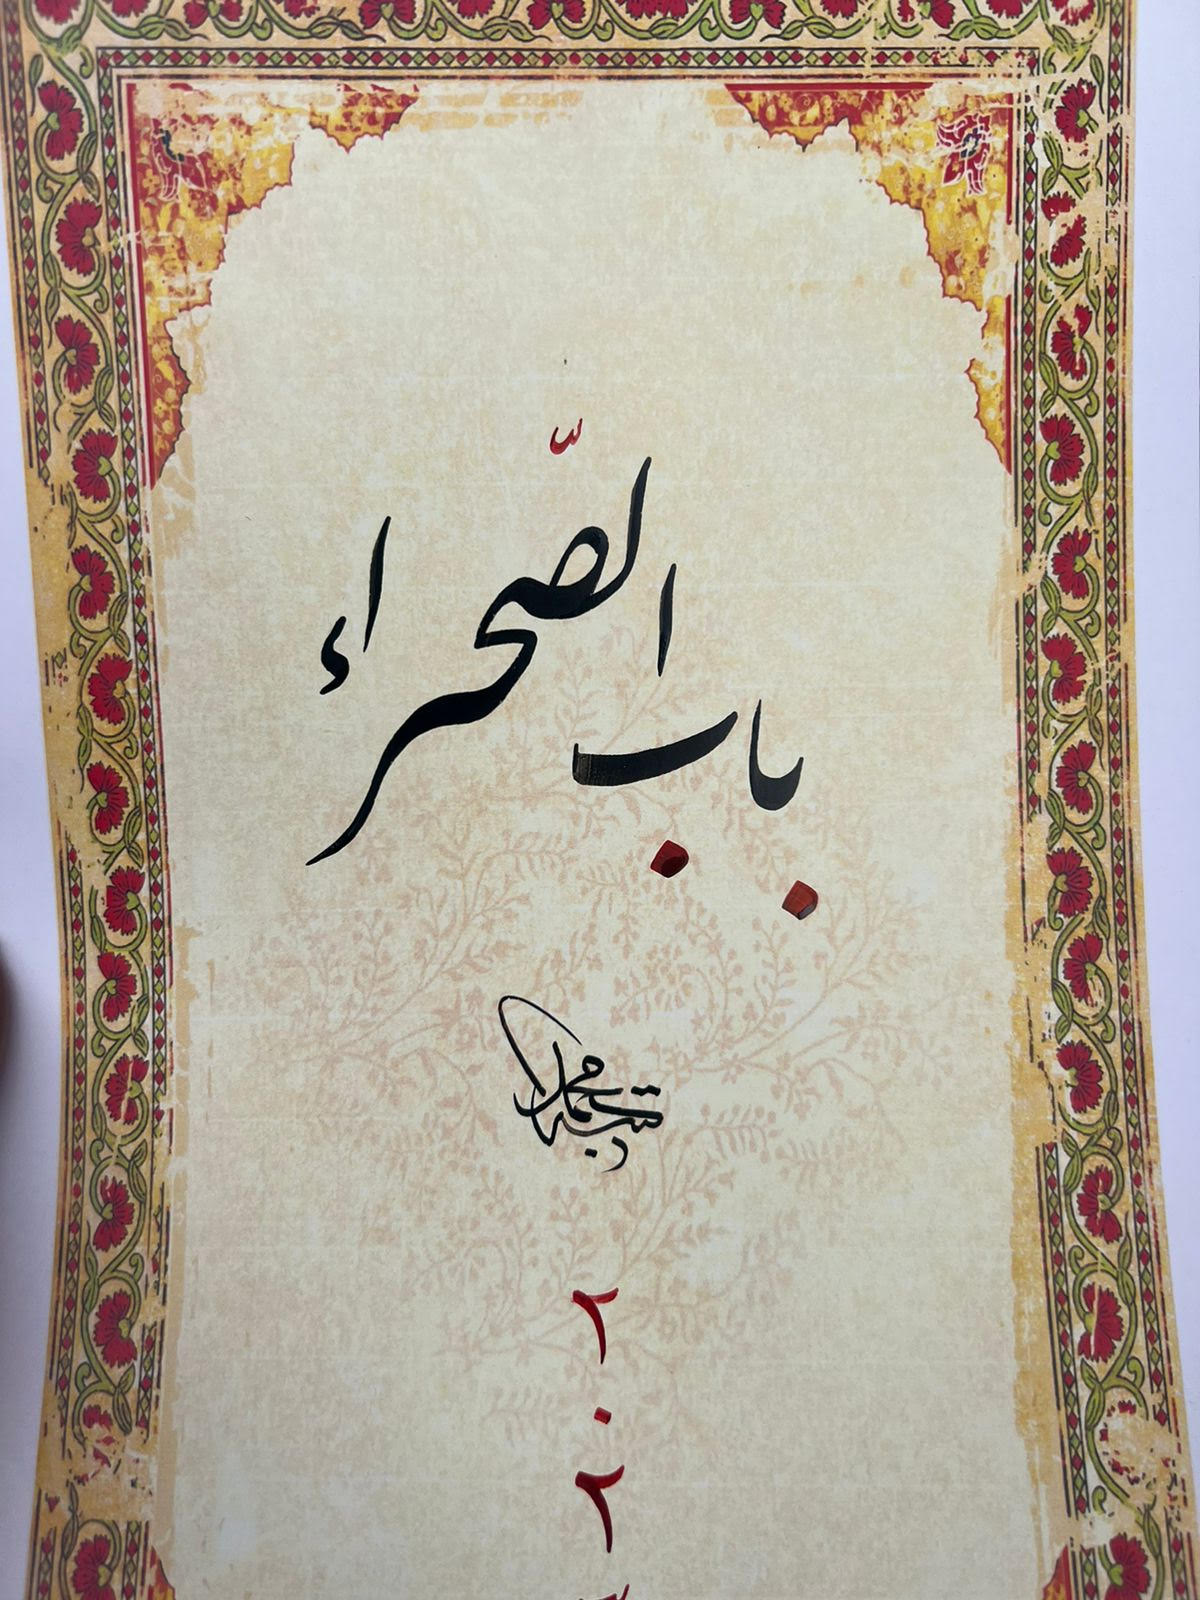 باب الصّحراء
محمد
٢
٠
٢